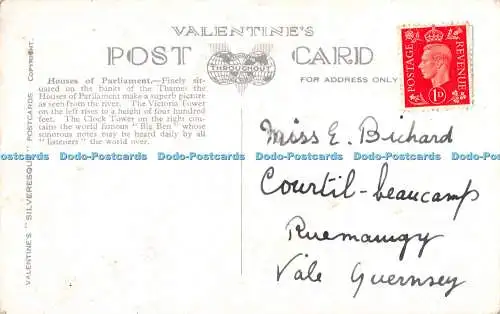 VALENTINE'S
POST CARD
THROUGHOUT
FOR ADDRESS ONLY
Houses of Parliament.—Finely sit-
uated on the banks of the Thames the
Houses of Parliament make a superb picture
as seen from the river. The Victoria Tower
on the left rises to a height of four hundred
feet. The Clock Tower on the right con-
tains the world famous "Big Ben" whose
sonorous notes may be heard daily by all
"listeners" the world over.
VALENTINE'S "SILVERESQUE" POSTCARDS COPYRIGHT.
POSTAGE
REVENUE
1D
Miss E. Bichard
Courtil-beaucamp
Ruemaingy
Vale Guernsey
Dodo-Postcards Dodo-Postcards Dodo-Postcards Dodo-Postcards Dodo-Postcards Dodo-Postcards